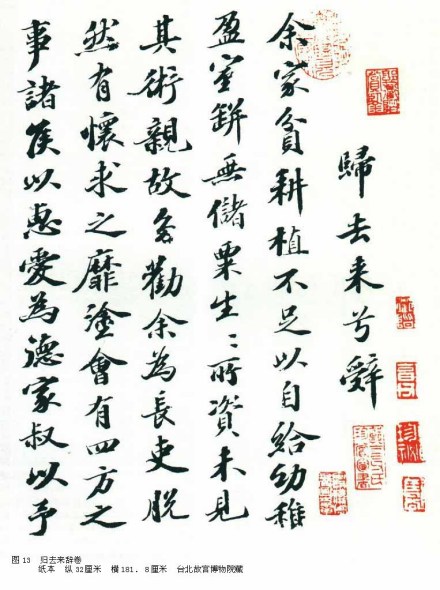 歸去来兮辭
余家貧耕植不足以自給幼稚
盈室缾無儲粟生〻所資未見
其術親故多勸余為長吏脱
然有懷求之靡塗會有四方之
事諸侯以惠愛為德家叔以予
图 13　归去来辞卷
纸本　纵 32厘米　横 181. 8厘米　台北故宫博物院藏